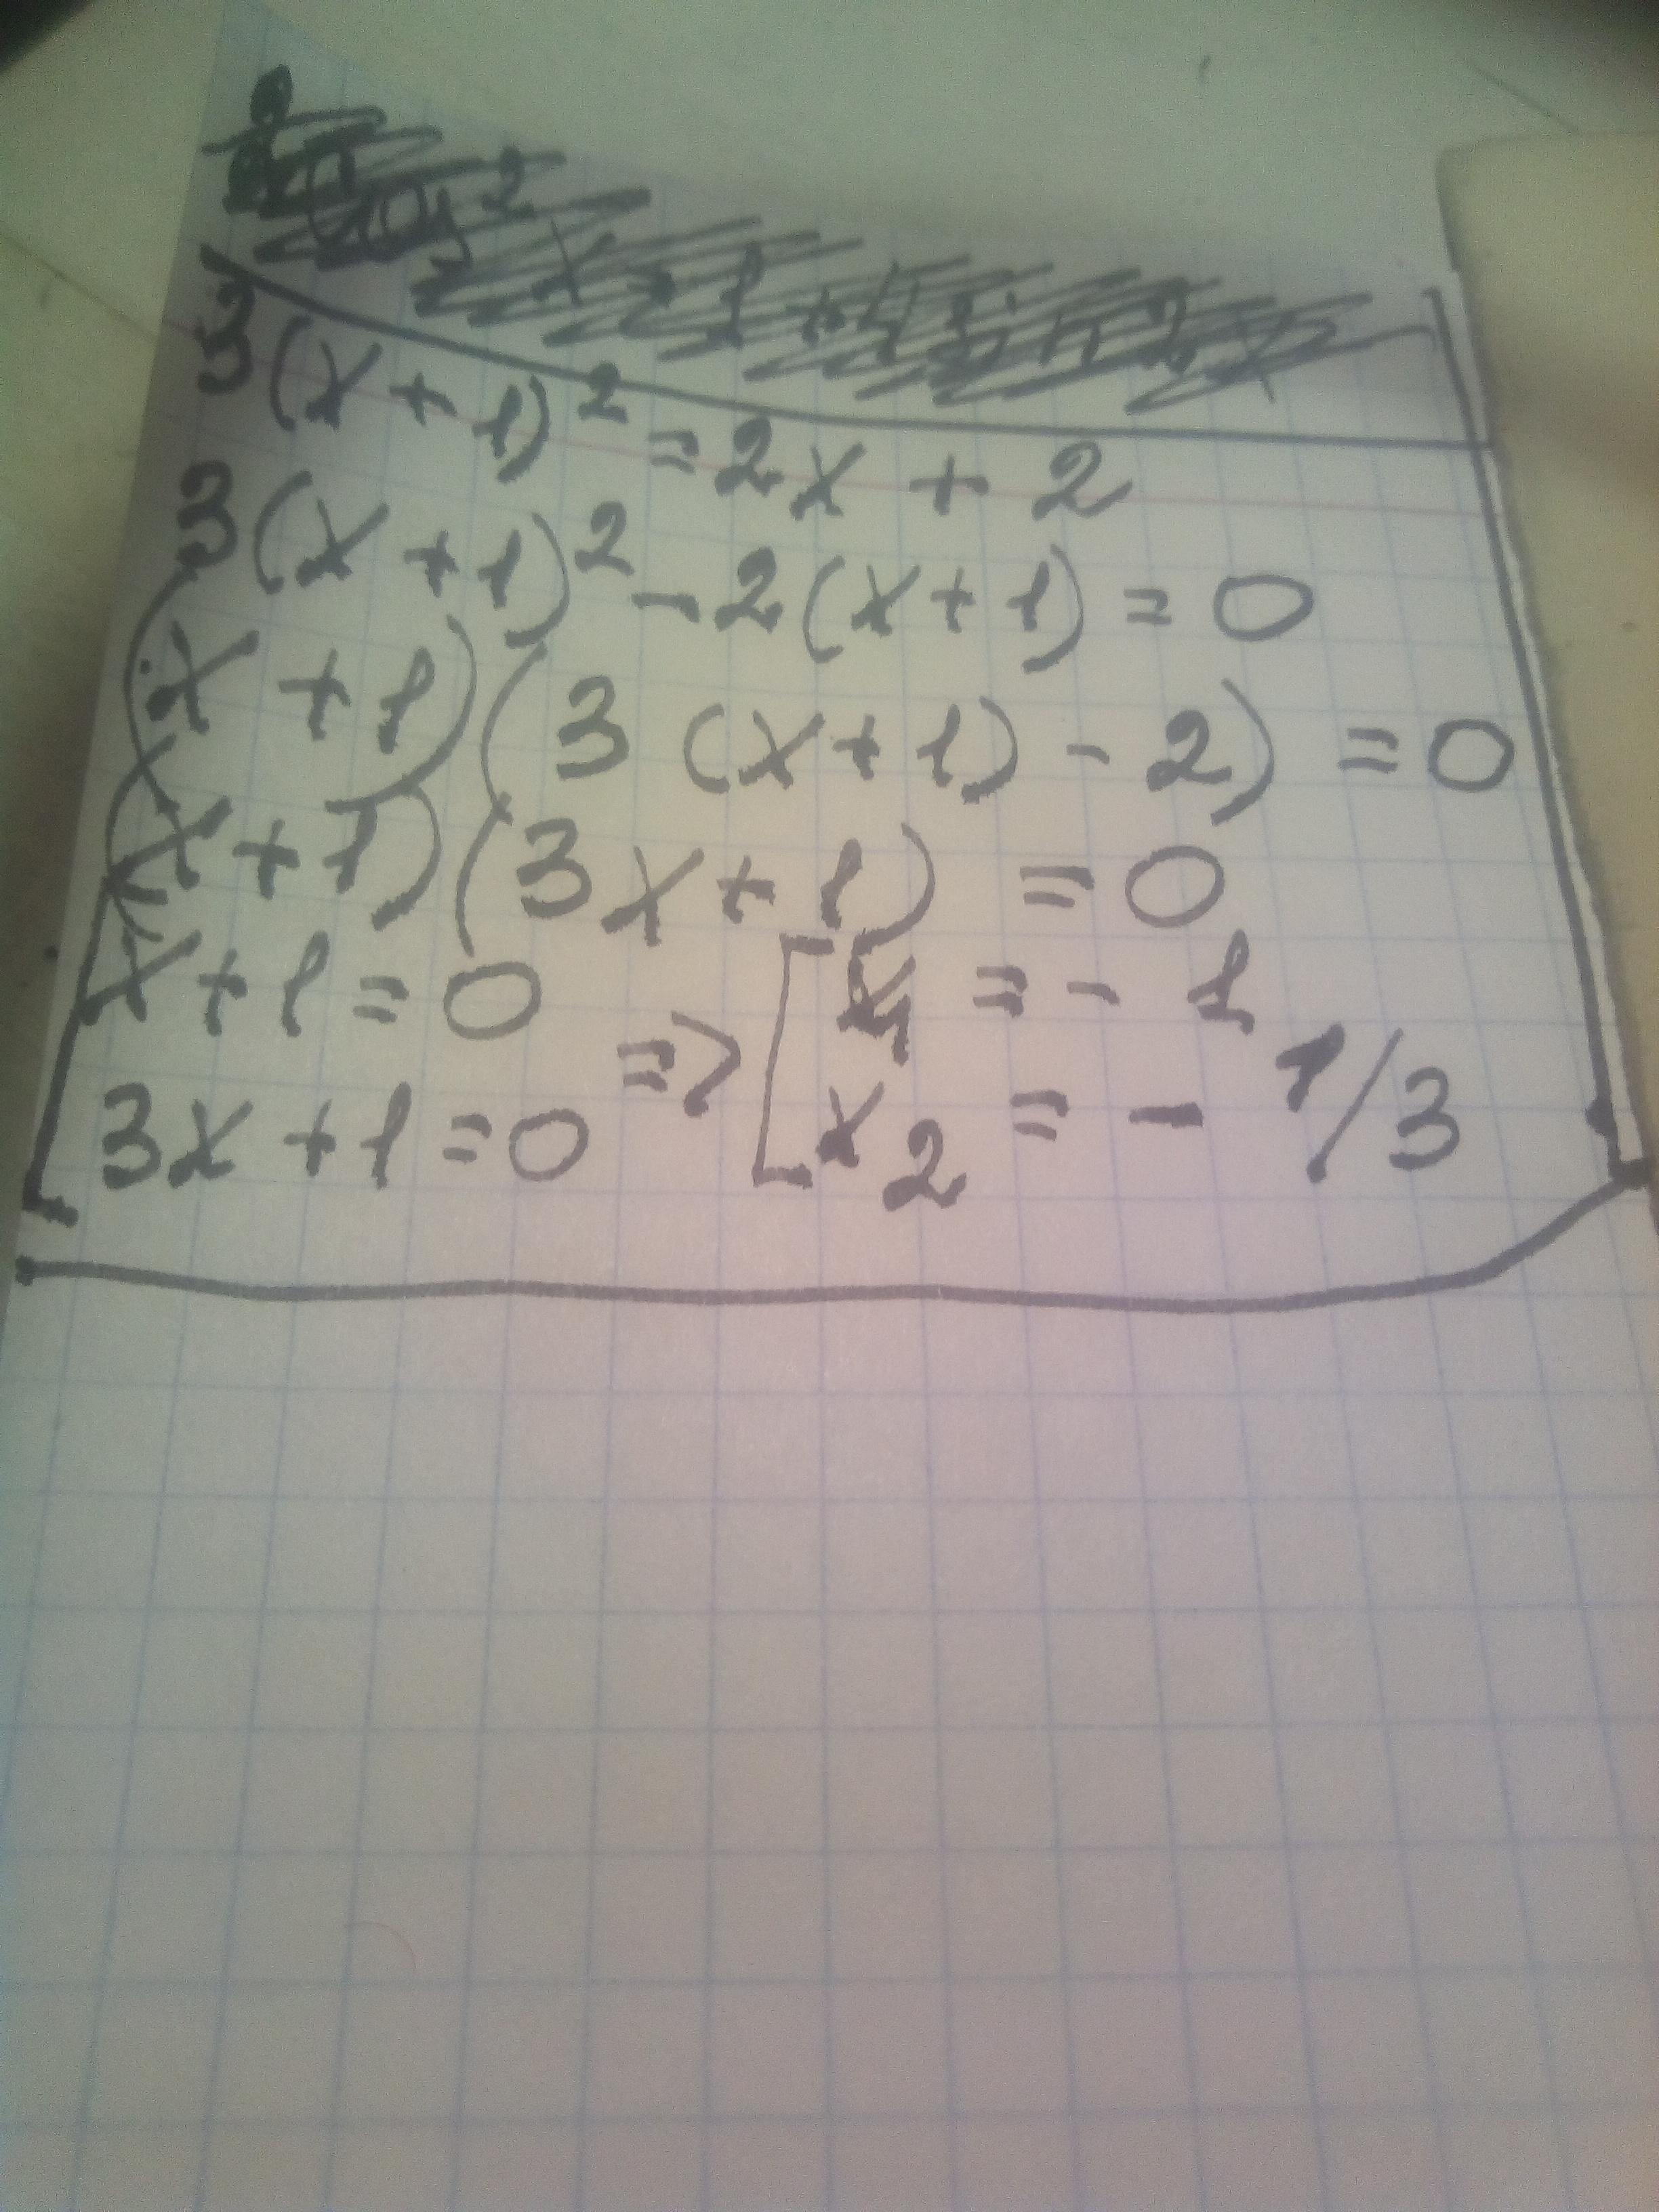 3(x+1)² = 2x + 2
3(x+1)² - 2(x+1) = 0
(x+1)(3(x+1) - 2) = 0
(x+1)(3x+1) = 0
x+1=0 => [ x₁ = - 1
3x+1=0 x₂ = - 1/3